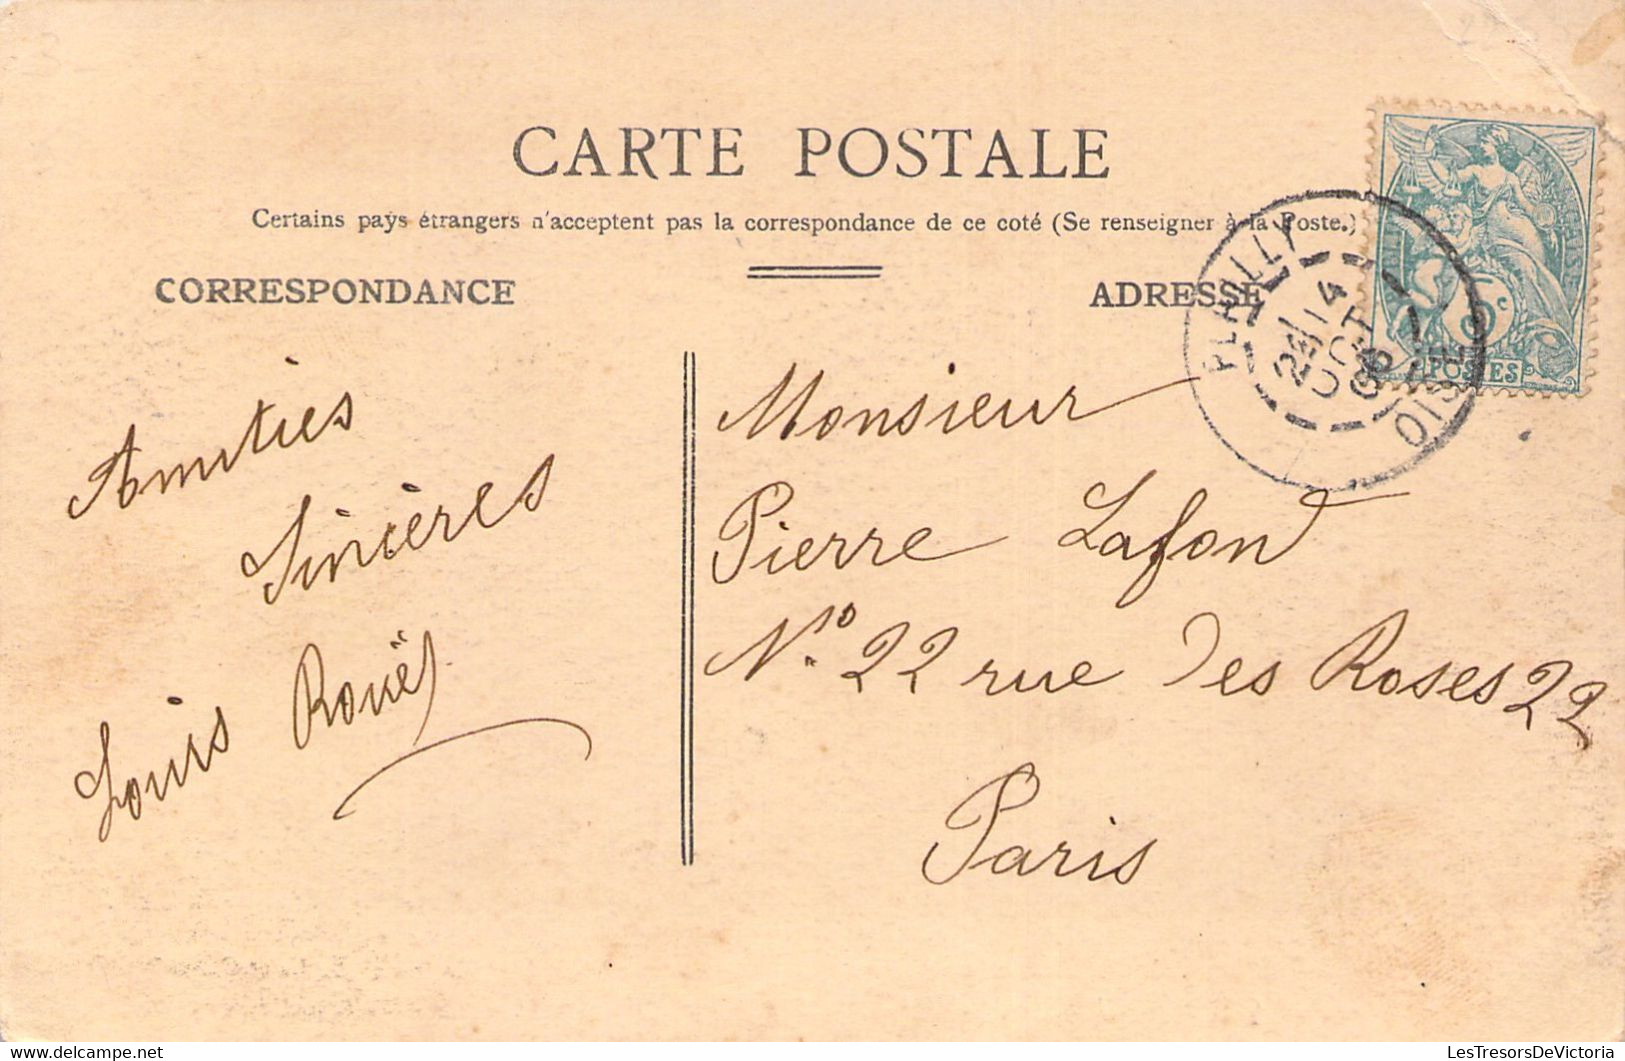 CARTE POSTALE
Certains pays étrangers n'acceptent pas la correspondance de ce coté (Se renseigner à la Poste.)
CORRESPONDANCE
ADRESSE
Amitiés
Sincères
Louis Rouës
Monsieur
Pierre Lafond
N.º 22 rue des Roses 22
Paris
OISE
14
OCT
5c
POSTES
delcampe.net
LesTresorsDeVictoria